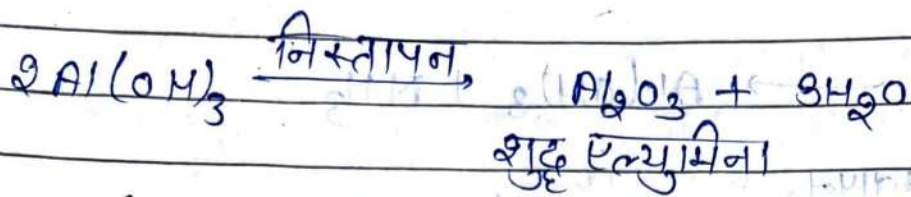 2Al(OH)₃ निस्तापन, Al₂O₃ + 3H₂O
शुद्ध एल्युमिना